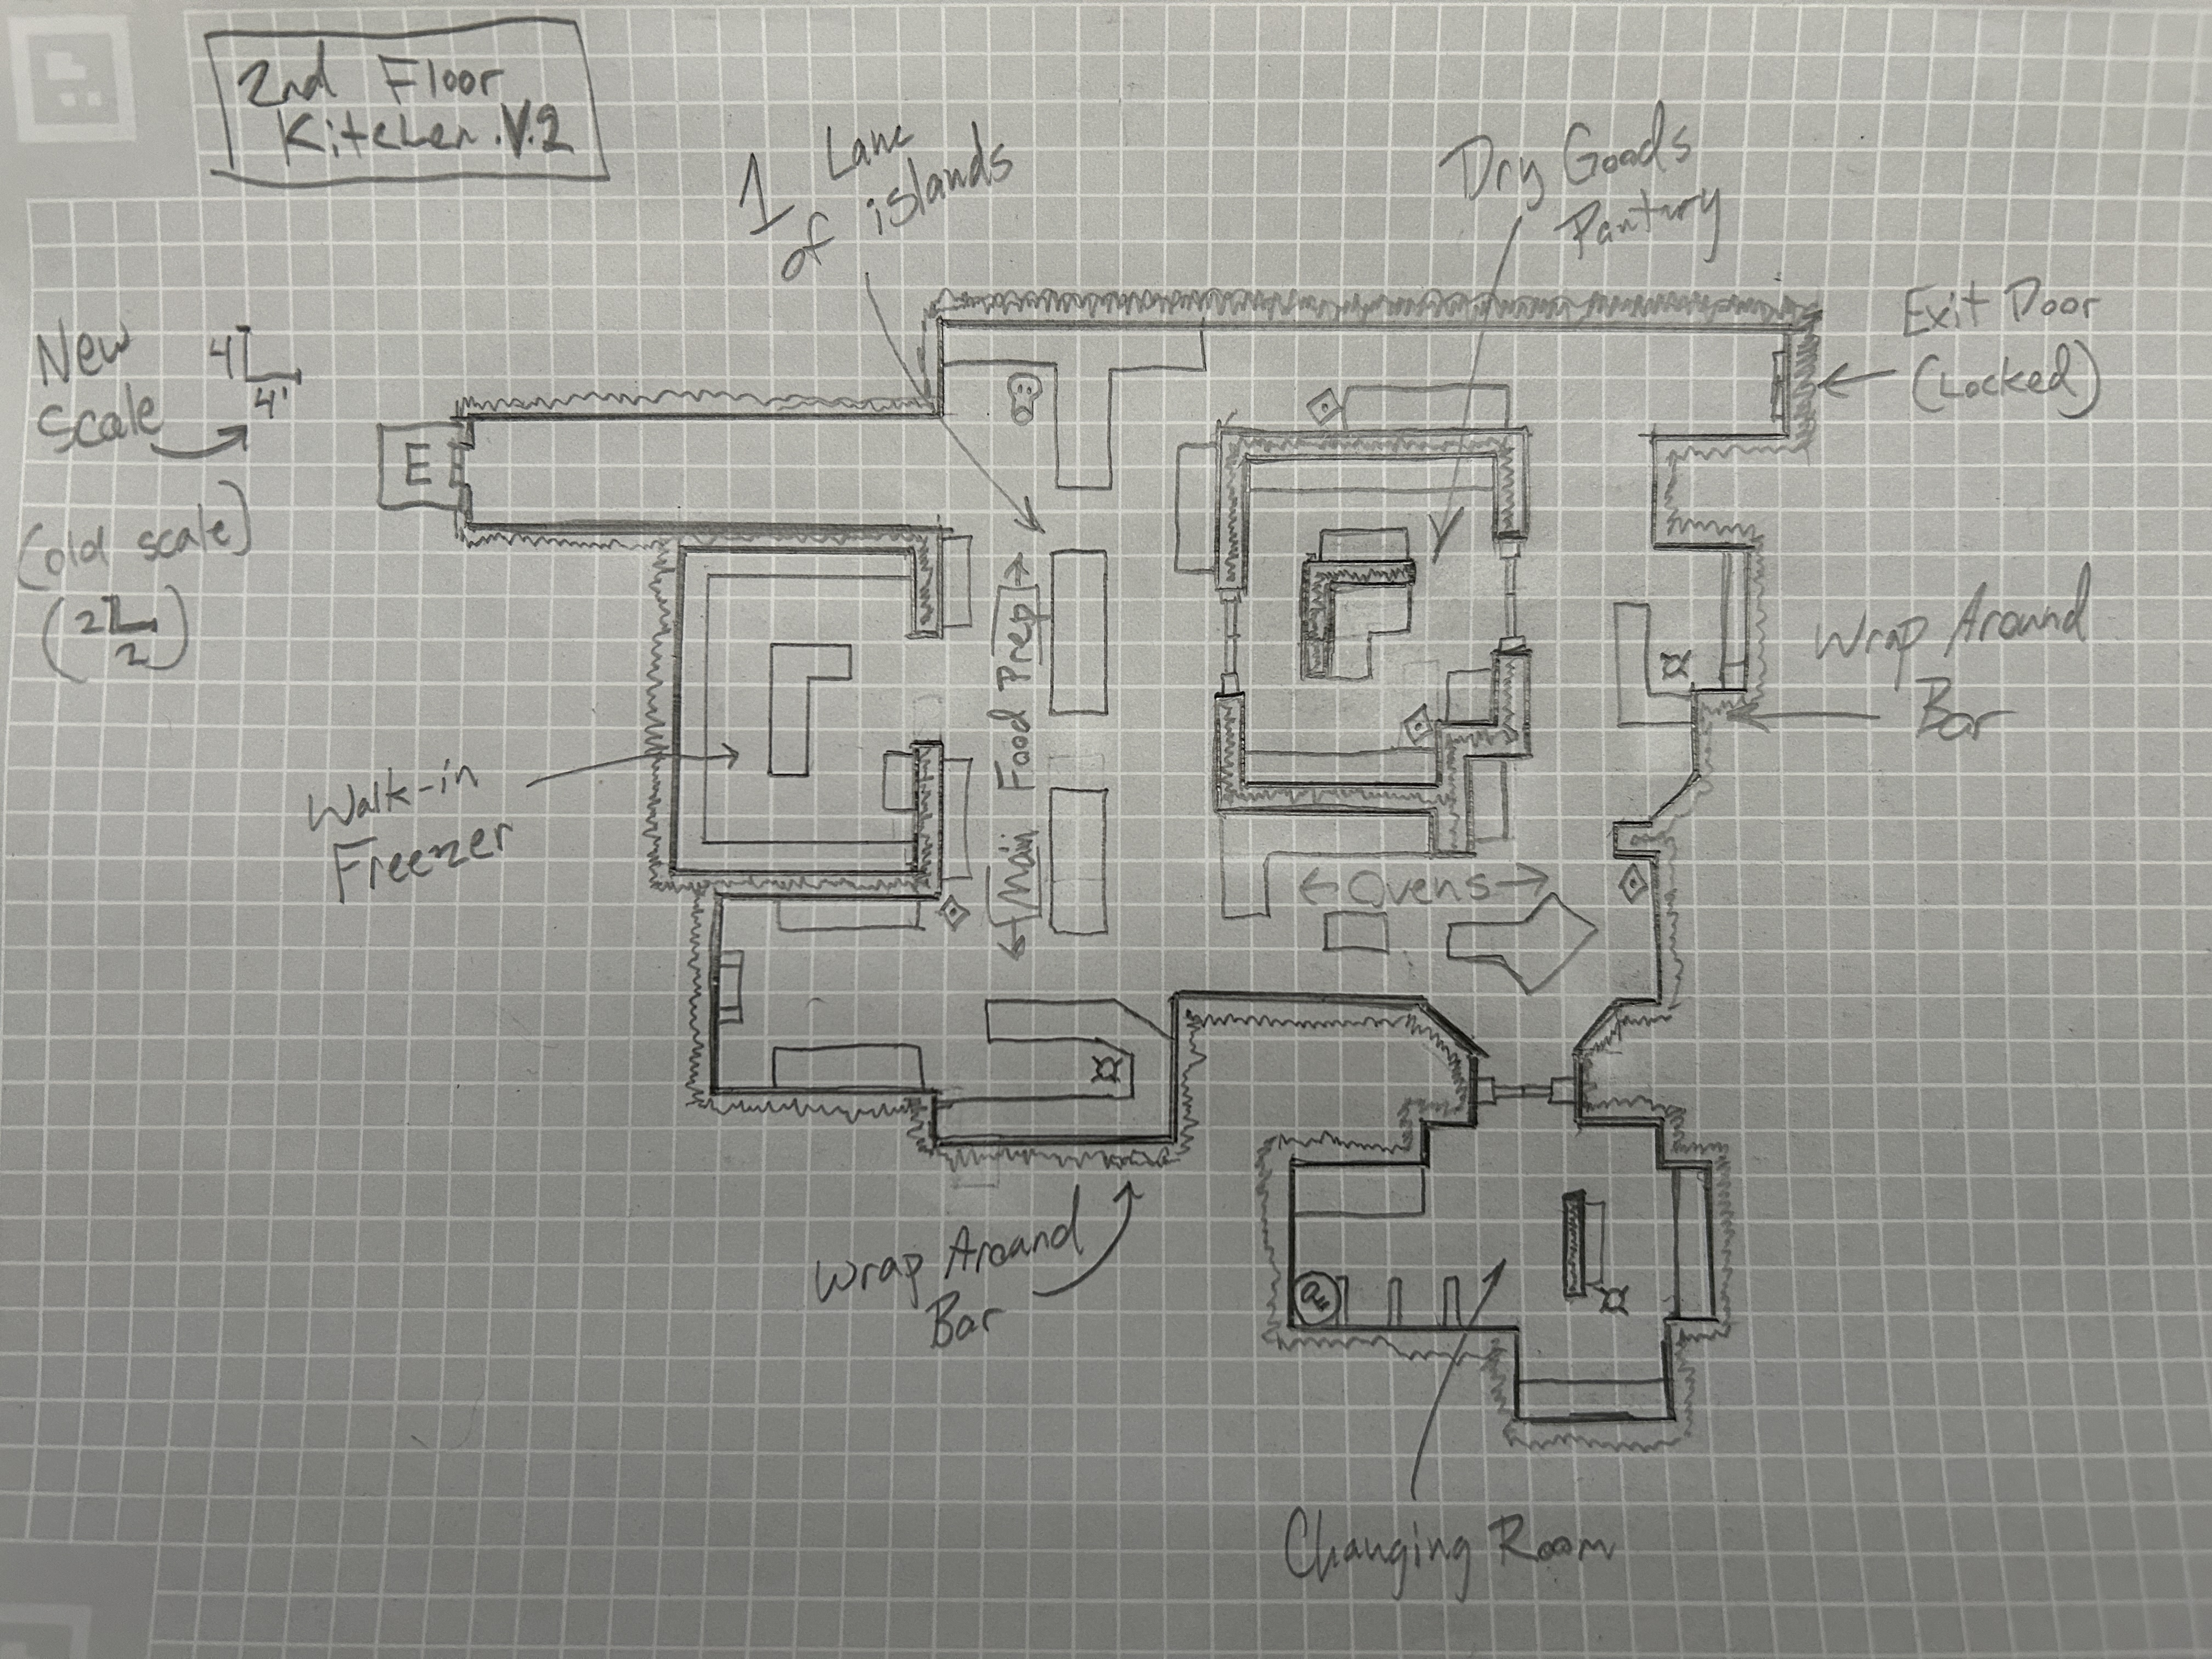 2nd Floor
Kitchen.V.2
1 Lane
of islands
Dry Goods
Pantury
Exit Door
(Locked)
New
Scale
4
4'
E
(old scale)
(2
2)
Main Food Prep
Wrap Around
Bar
Walk-in
Freezer
Ovens
Wrap Around
Bar
Changing Room